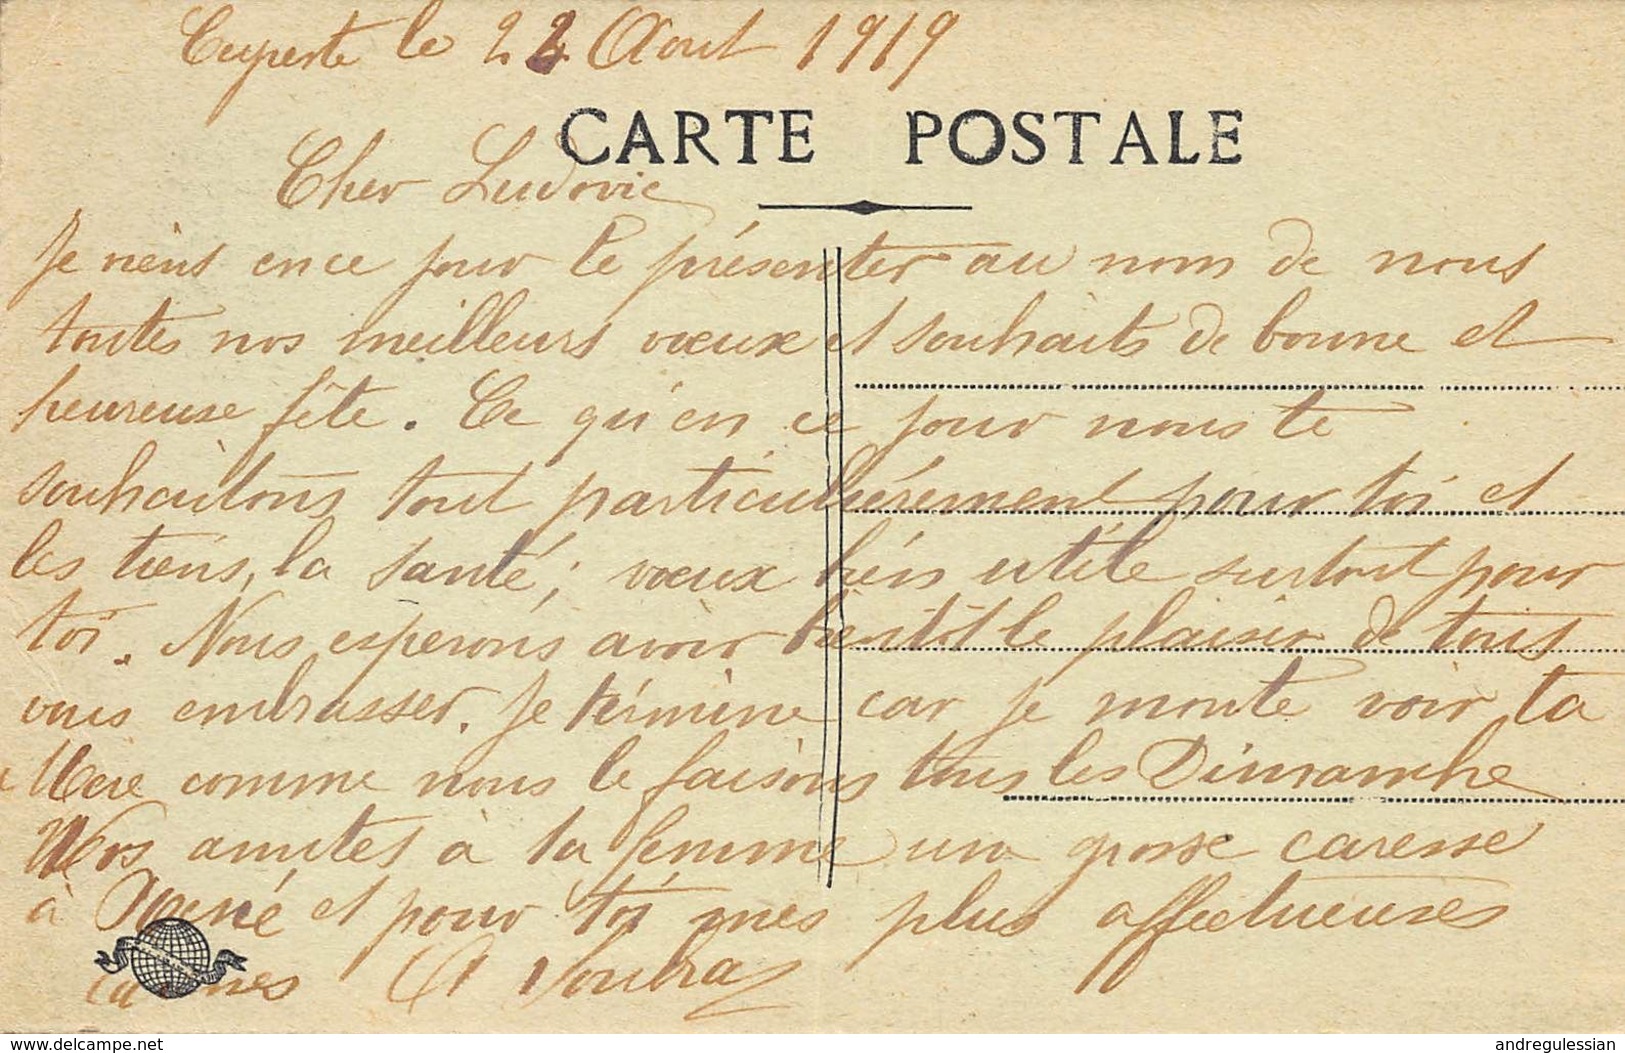 le 22 Aout 1919
CARTE POSTALE
Cher Ludovic
Je viens en ce jour te présenter au nom de nous
toutes nos meilleurs vœux et souhaits de bonne et
heureuse fête. Ce qu'en ce jour nous te
souhaitons tout particulièrement pour toi et
les tiens, la santé; vœux bien utile surtout pour
toi. Nous esperons avoir bientôt le plaisir de tous
vous embrasser. Je termine car je monte voir ta
Mère comme nous le faisons tous les Dimanche
Nos amités à ta femme une grosse caresse
à et pour toi mes plus affectueuses
delcampe.net
andregulessian